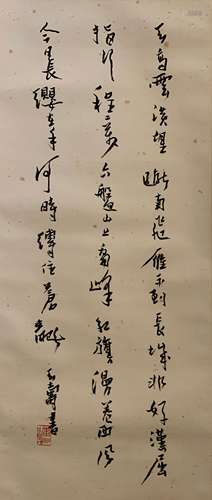 天高雲淡望斷南飛雁不到長城非好漢屈
指行程二萬六盤山上高峰紅旗漫卷西風
今日長纓在手何時縛住蒼龍 壽書